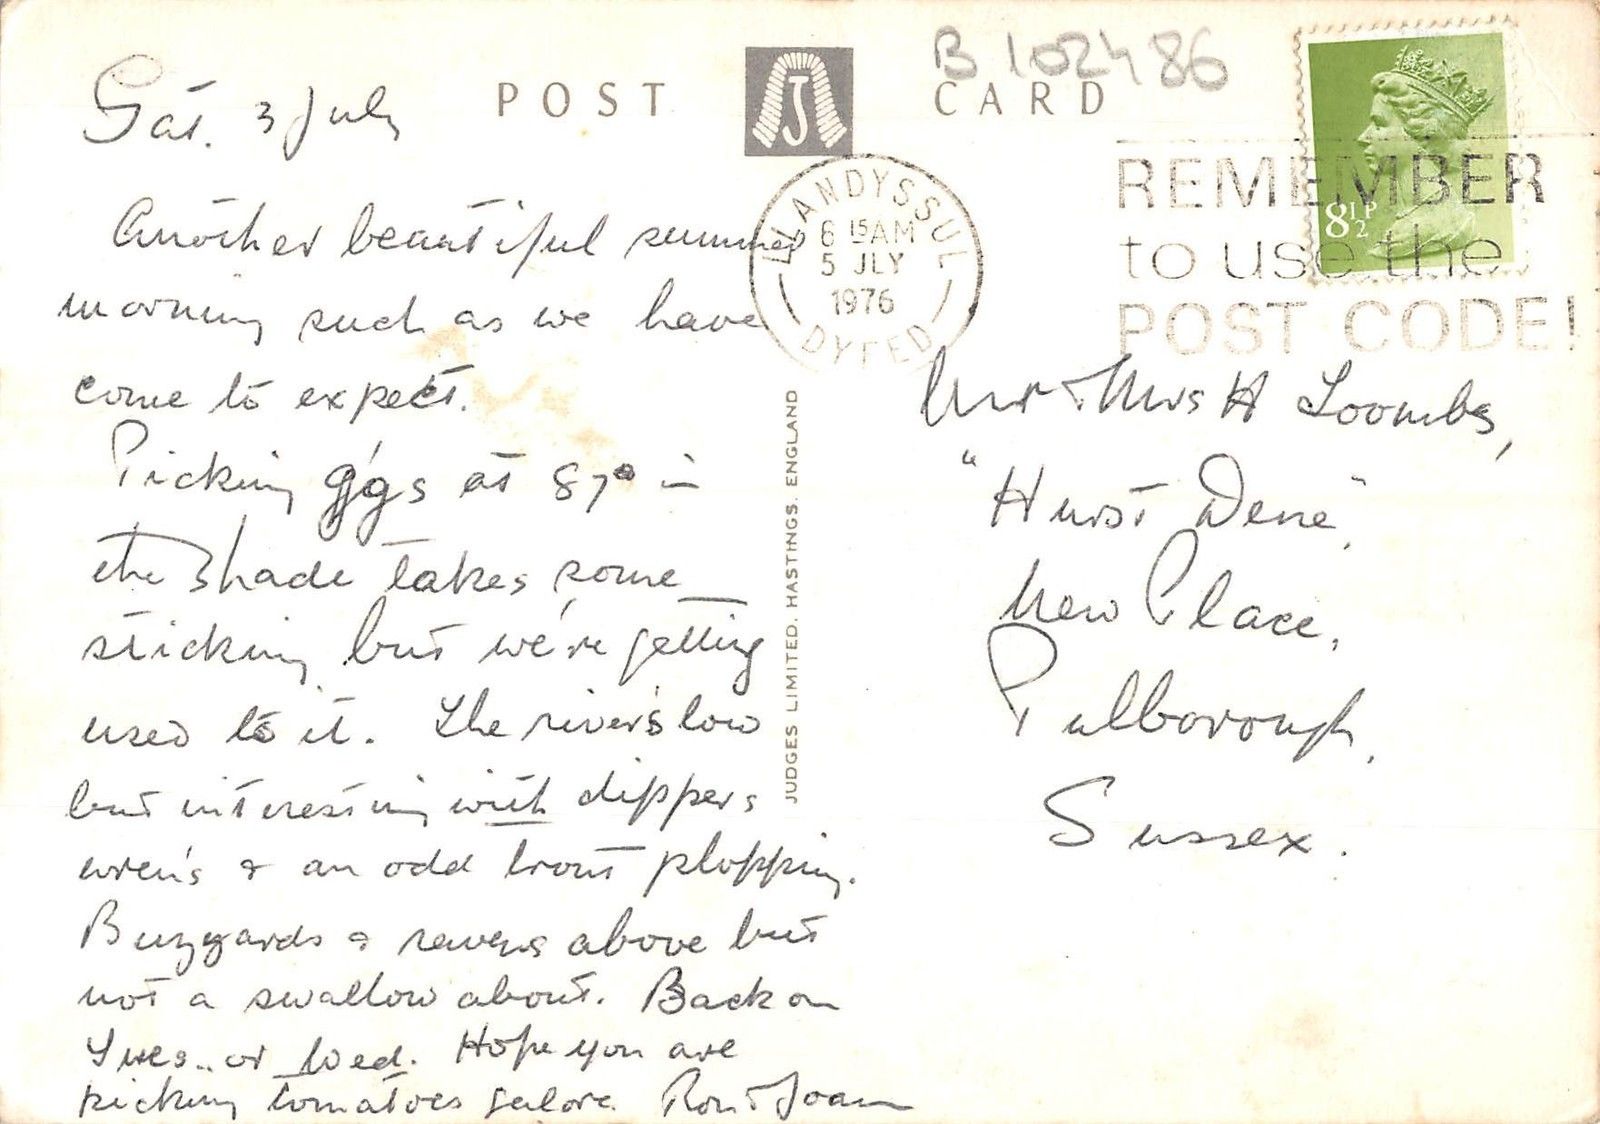 POST CARD
J
B 102486
Sat. 3 July
Another beautiful summer
morning such as we have
come to expect.
Picking g'gs at 87° in
the shade takes some
sticking but we're getting
used to it. The river's low
but interesting with dippers
wren's & an odd trout plopping.
Buzzards & ravens above but
not a swallow about. Back on
Tues.. or Wed. Hope you are
picking tomatoes galore. Ron & Joan
JUDGES LIMITED, HASTINGS, ENGLAND
LLANDYSSUL
6 15 AM
5 JLY
1976
DYFED
REMEMBER
to use the
POST CODE!
8½P
Mr & Mrs H Loombs,
"Hurst Dene",
New Place,
Pulborough,
Sussex.